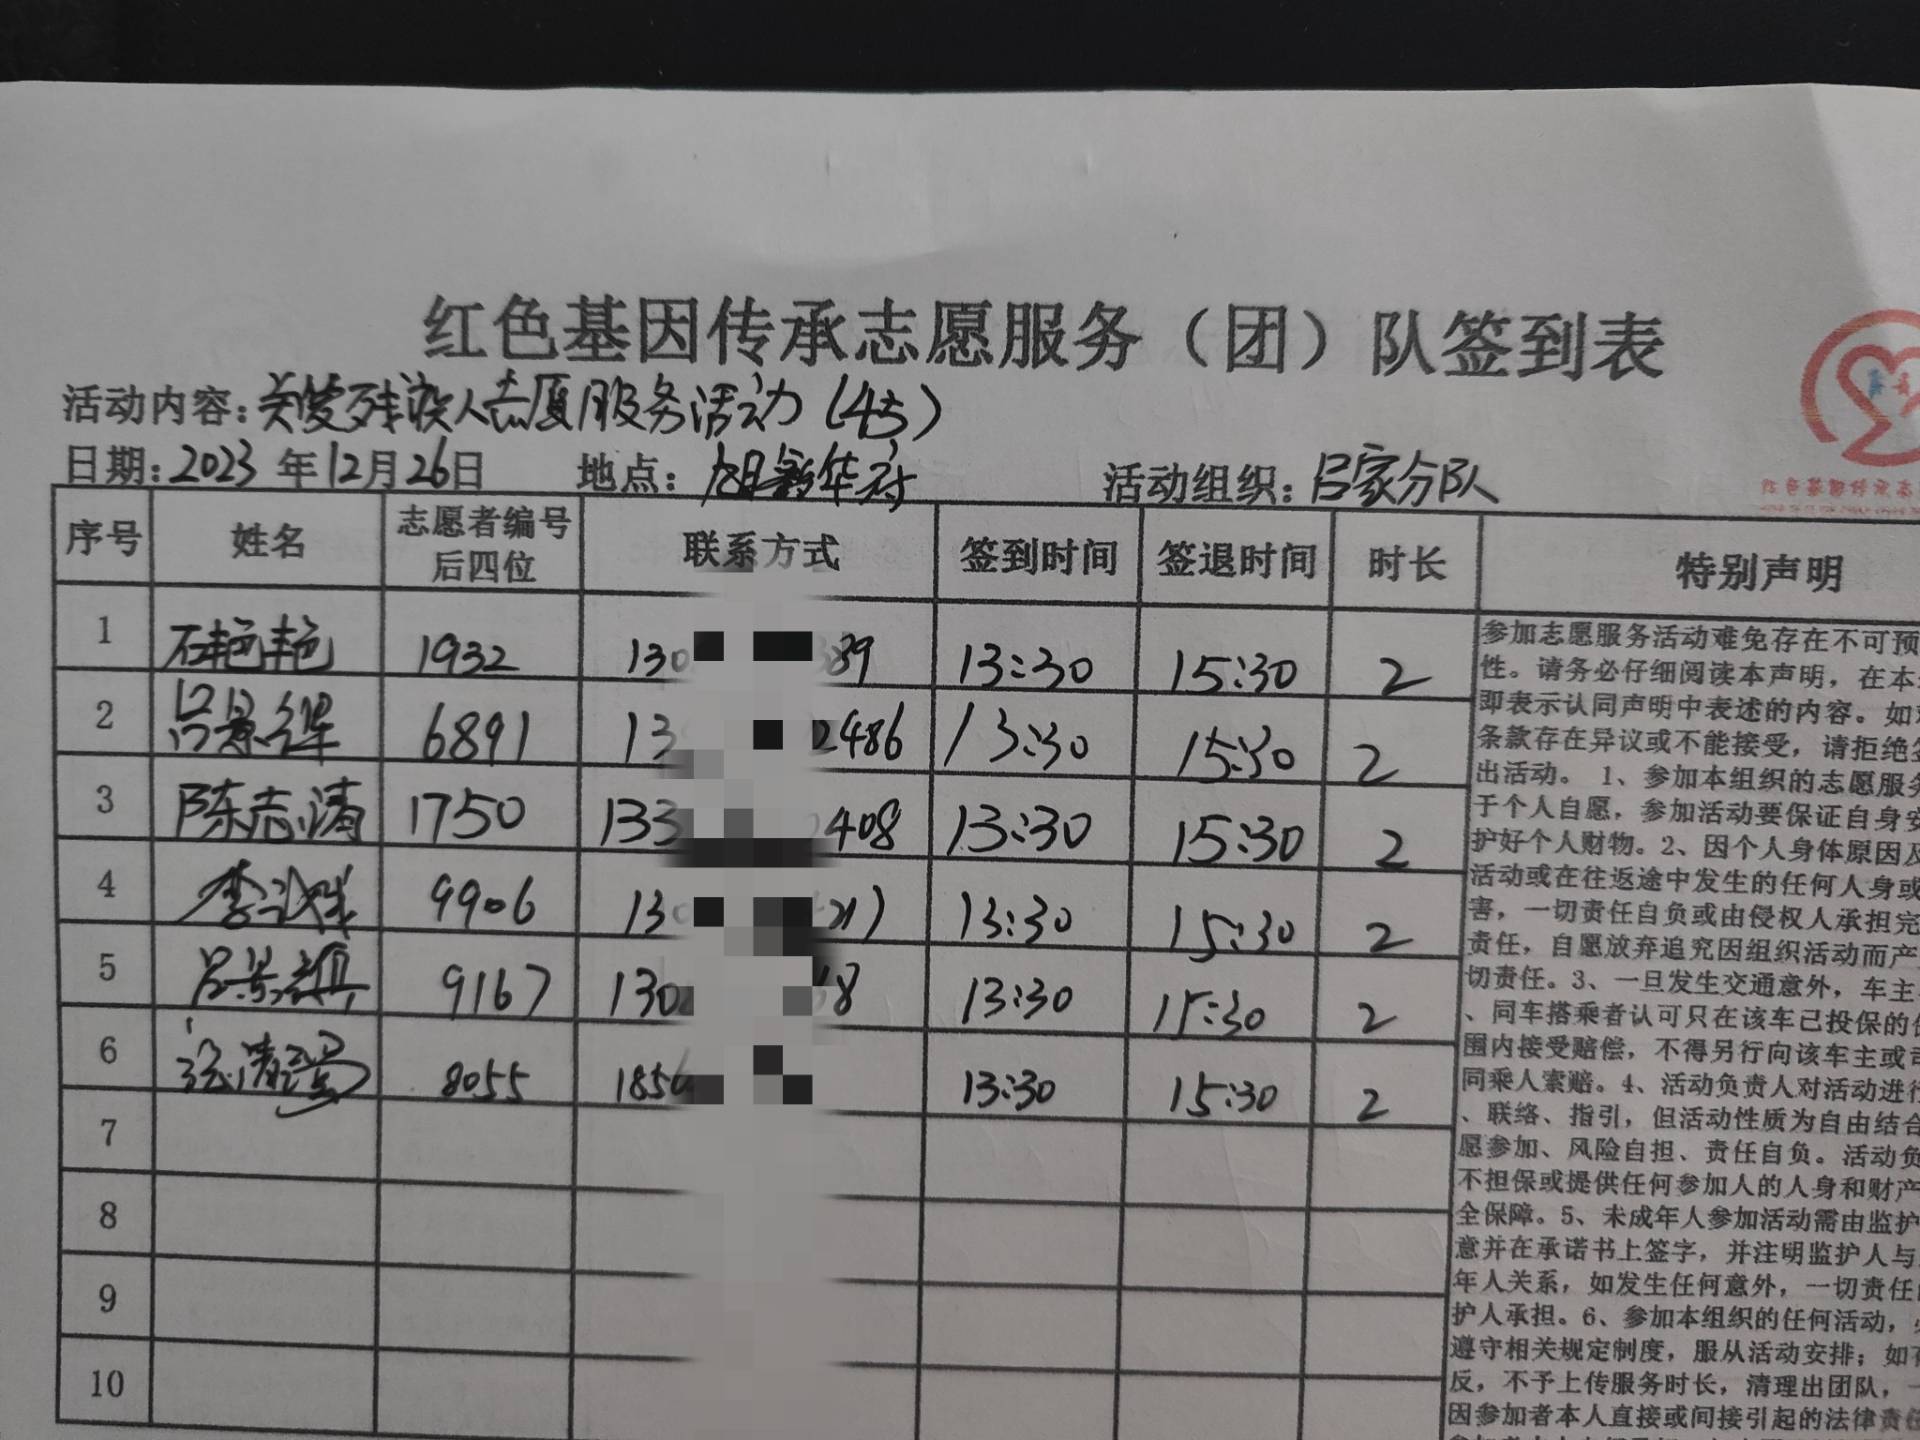 红色基因传承志愿服务（团）队签到表
活动内容：关爱残疾人志愿服务活动（4号）
日期：2023年12月26日 地点：旭新华府 活动组织：吕家分队
序号 姓名 志愿者编号后四位 联系方式 签到时间 签退时间 时长 特别声明
1 石艳艳 1932 130 389 13:30 15:30 2
2 吕景 6891 13 2486 13:30 15:30 2
3 陈志清 1750 133 408 13:30 15:30 2
4 李 9906 130 13:30 15:30 2
5 吕景 9167 130 8 13:30 15:30 2
6 清 8055 1856 13:30 15:30 2
7
8
9
10
参加志愿服务活动难免存在不可预
性。请务必仔细阅读本声明，在本
即表示认同声明中表述的内容。如
条款存在异议或不能接受，请拒绝
出活动。 1、参加本组织的志愿服务
于个人自愿，参加活动要保证自身安
护好个人财物。2、因个人身体原因及
活动或在往返途中发生的任何人身或
害，一切责任自负或由侵权人承担完
责任，自愿放弃追究因组织活动而产
切责任。3、一旦发生交通意外，车主
、同车搭乘者认可只在该车已投保的
围内接受赔偿，不得另行向该车主或
同乘人索赔。4、活动负责人对活动进行
、联络、指引，但活动性质为自由结合
愿参加、风险自担、责任自负。活动负
不担保或提供任何参加人的人身和财产
全保障。5、未成年人参加活动需由监护
意并在承诺书上签字，并注明监护人与
年人关系，如发生任何意外，一切责任
护人承担。6、参加本组织的任何活动，
遵守相关规定制度，服从活动安排；如
反，不予上传服务时长，清理出团队，
因参加者本人直接或间接引起的法律责任